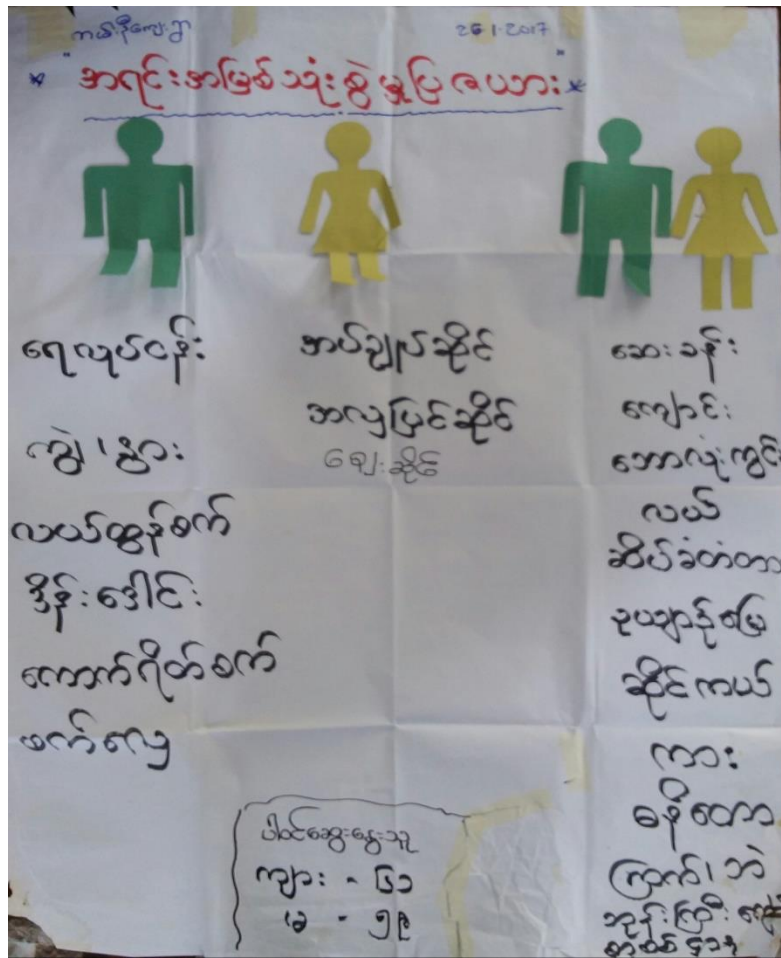 ကယ်နီကျေးရွာ
26.1.2017
"အရင်းအမြစ်သုံးစွဲမှုပြဇယား"
ရေလုပ်ငန်း
ကျွဲ၊ နွား
လယ်ထွန်စက်
ဒိုန်းဒေါင်း
ကောက်ရိတ်စက်
ဖက်လှေ
အပ်ချုပ်ဆိုင်
အလှပြင်ဆိုင်
ဈေးဆိုင်
ဆေးခန်း
ကျောင်း
ဘောလုံးကွင်း
လယ်
ဆိပ်ခံတံတား
ဥယျာဉ်မြေ
ဆိုင်ကယ်
ကား
ဓနိတော
ကြက်၊ ဘဲ
ဘုန်းကြီးကျောင်း
ပါဝင်ဆွေးနွေးသူ
ကျား - ၆၁
မ - ၅၉